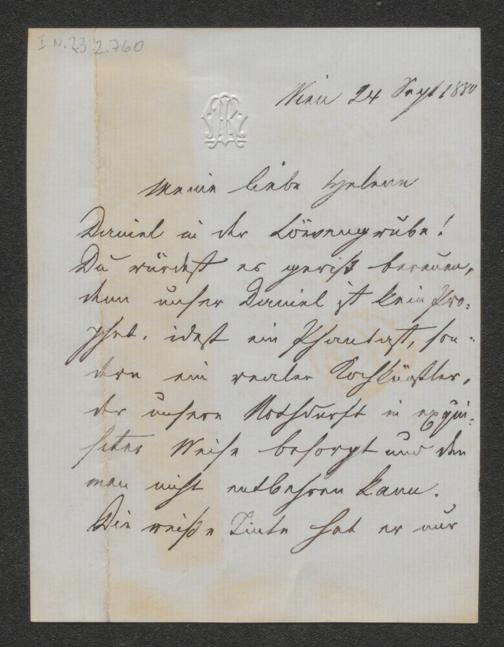 I.N. 232.760
Wien 24 Sept 1880
Meine liebe Helene
Daniel in der Löwengrube!
Du würdest es gewiß bereuen,
denn unser Daniel ist kein Pro-
phet. idest ein Phantast, son-
dern ein realer Kochkünstler,
der unsere Nothdurft in exqui-
siter Weise besorgt und den
man nicht entbehren kann.
Die weiße Tinte hat er nur